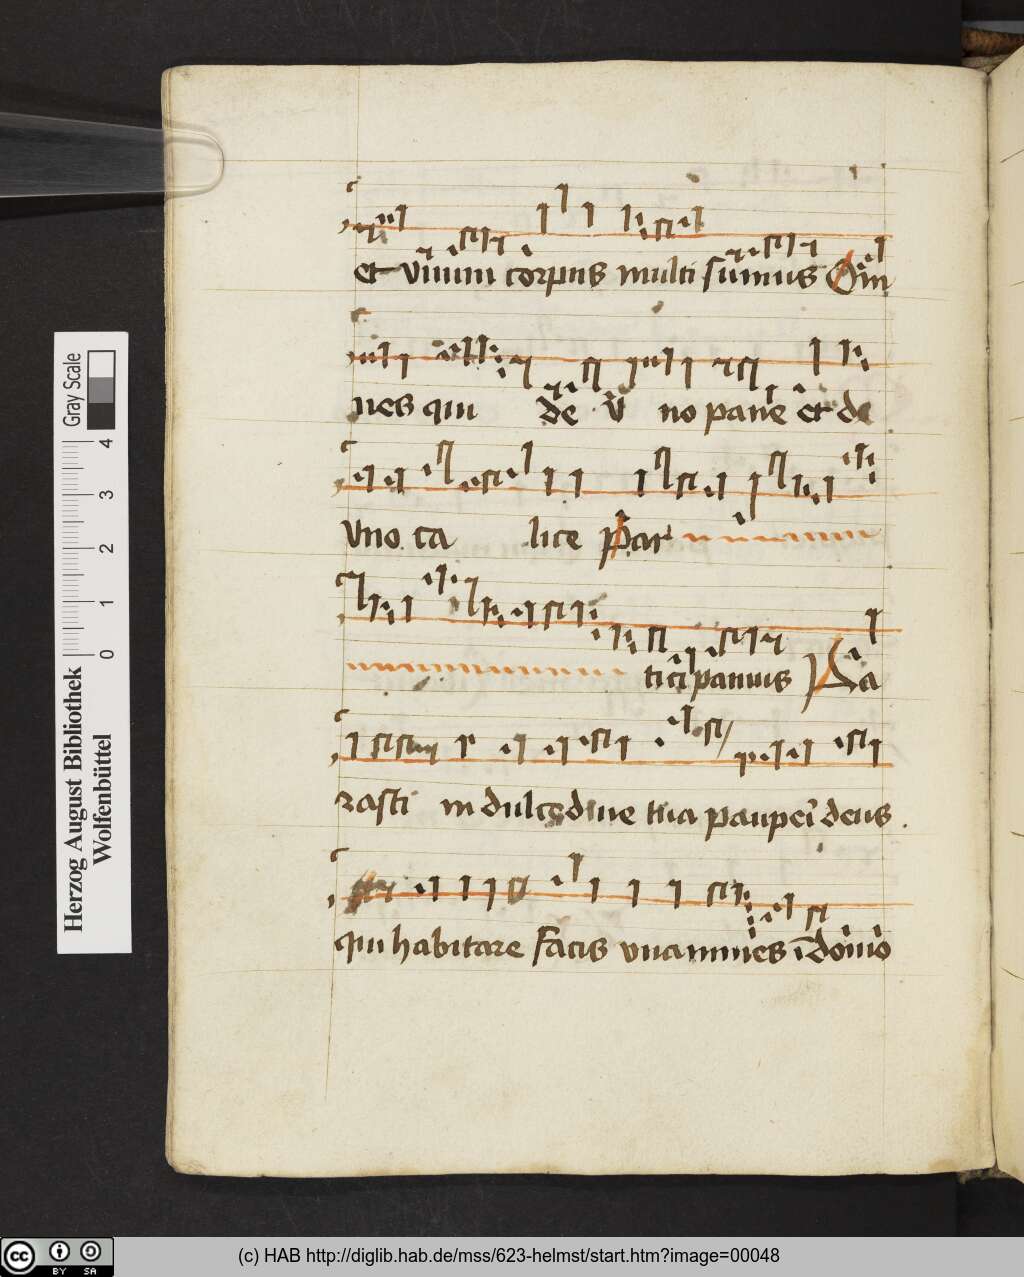 et vnum corpus multi sumus Om
nes qui de v no pane et de
vno ca lice par
ticipamus Pa
rasti in dulcedine tua pauperi deus
qui habitare facis vnanimes ī domo
Gray Scale
0 1 2 3 4
Herzog August Bibliothek
Wolfenbüttel
cc BY SA
(c) HAB http://diglib.hab.de/mss/623-helmst/start.htm?image=00048